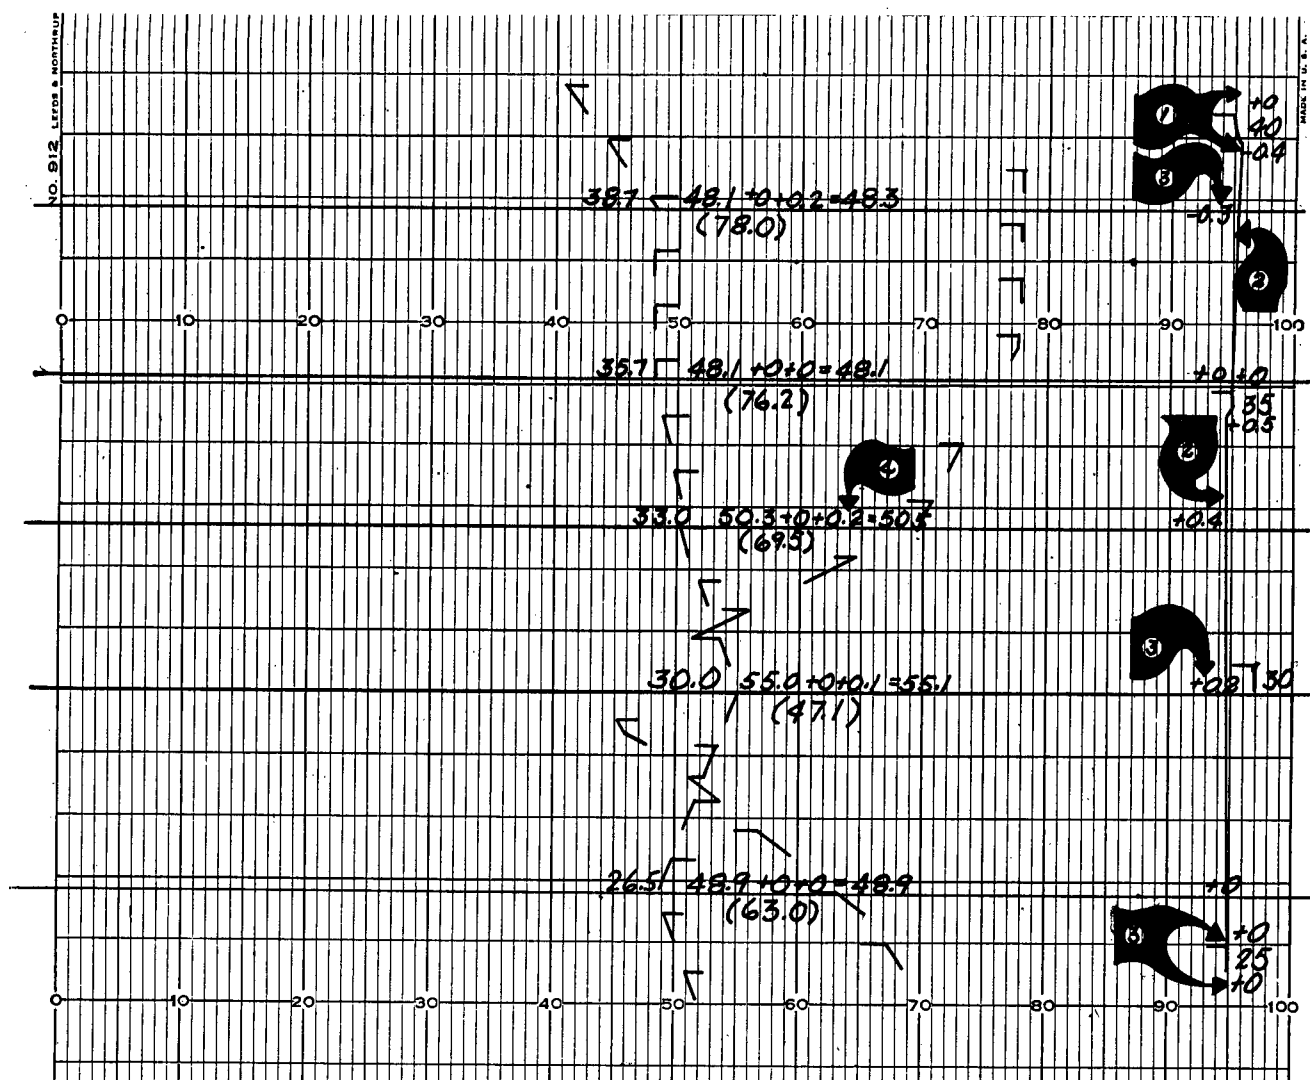 NO. 912 LEEDS & NORTHRUP
MADE IN U. S. A.
1
+0
40
-0.4
3
-0.3
38.7 48.1 +0 +0.2 = 48.3
(78.0)
2
0 10 20 30 40 50 60 70 80 90 100
35.7 48.1 +0 +0 = 48.1
(76.2)
+0 +0
35
+0.5
2
+0.4
4
33.0 50.3 +0 +0.2 = 50.5
(69.5)
3
+0.8
30
30.0 55.0 +0 +0.1 = 55.1
(47.1)
26.5 48.9 +0 +0 = 48.9
(63.0)
+0
+0
25
+0
0 10 20 30 40 50 60 70 80 90 100